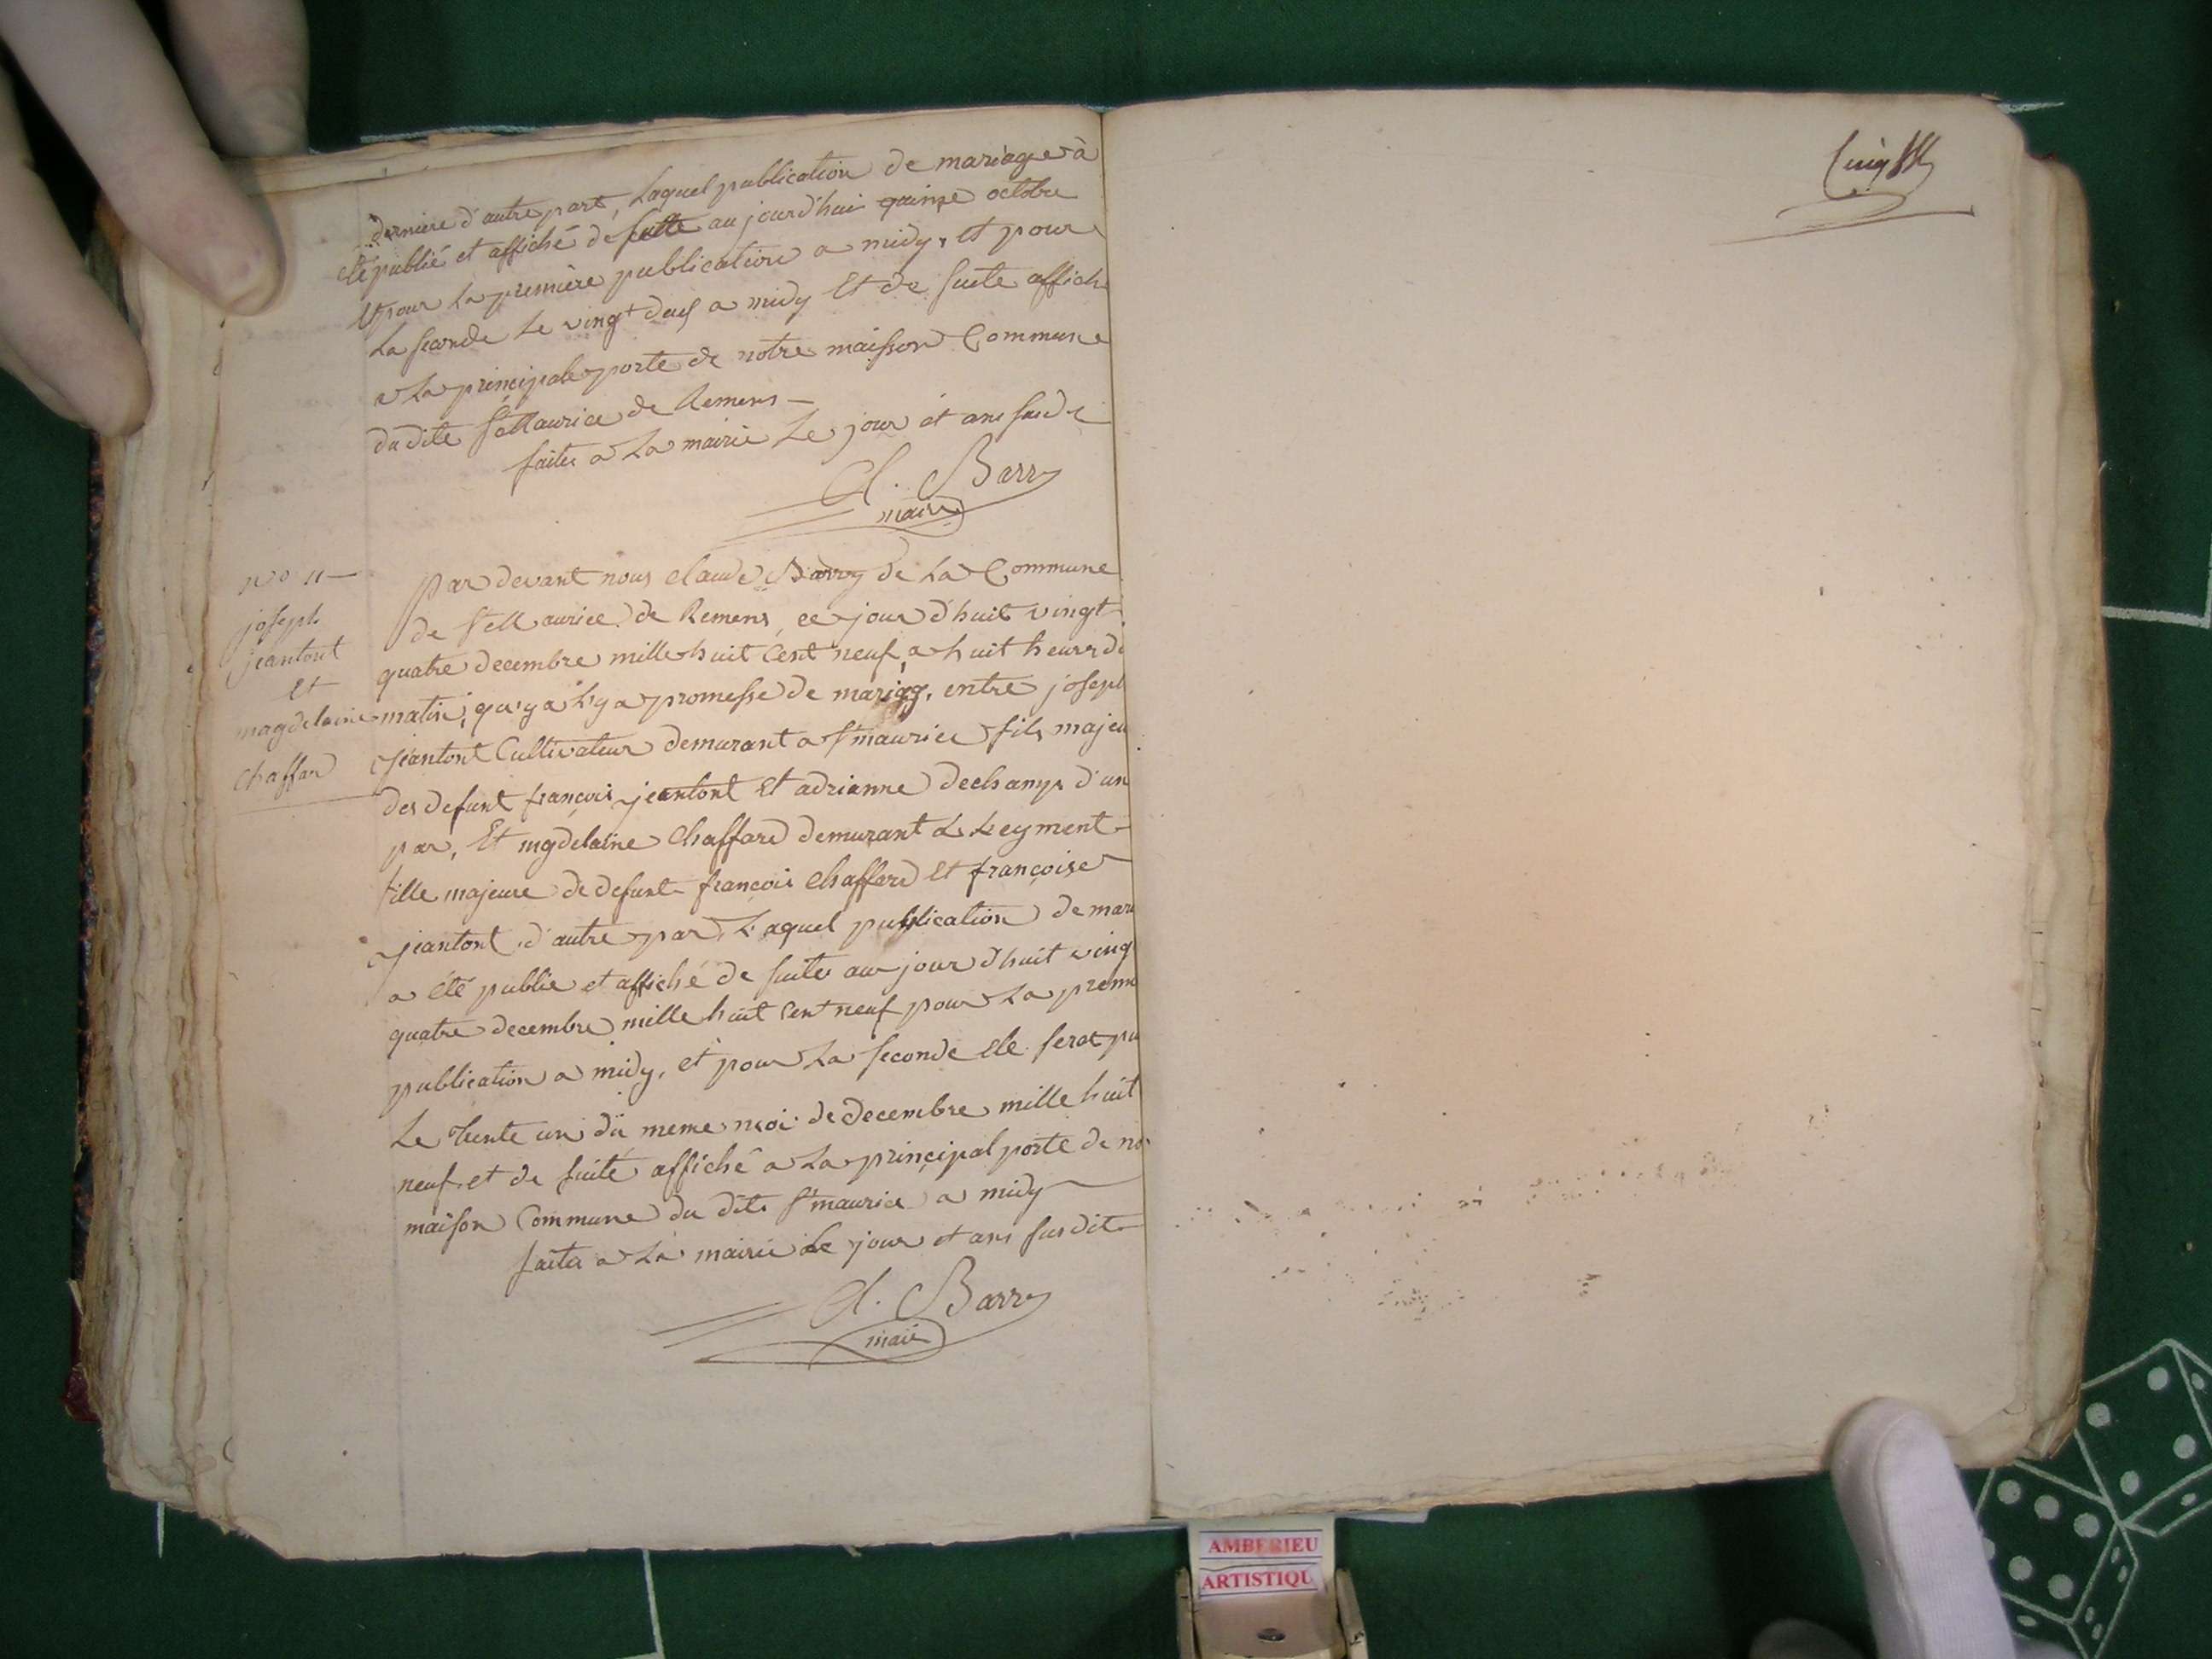 derniere d'autre part, Laquel publication de mariage à
été publié et affiché de suitte au jourd'hui quinze octobre
Et pour La premiere publication a midy, et pour
La seconde Le vingt deuf a midy Et de suite affich
a La principale porte de notre maison Commune
du dite St Maurice de Remens
faites a La mairie Le jour et ans susdi
Cl. Barry
maire
no 11
joseph
jeantont
Et
magdelaine
Chaffar
Par devant nous Claude Barry de La Commune
de St Maurice de Remens, ce jour d'huit vingt
quatre decembre mille huit Cent neuf, a huit heures du
matin, qu'y a L'y a promesse de mariag, entre joseph
jeantont Cultivateur demurant a St maurice fils majeu
des defunt françois jeantont Et adrianne dechamps d'un
par, Et mgdelaine Chaffard demurant a Leyment
fille majeure de defunt françois Chaffard Et françoise
jeantont d'autre par, Laquel publication de mari
a été publie et affiché de suites au jour d'huit ving
quatre decembre mille huit Cent neuf pour La premi
publication a midy, et pour La seconde ele serat pu
Le trente un du meme moi de decembre mille huit
neuf et de suite affiché a La principal porte de no
maison Commune du dite St maurice a midy
faites a La mairie Le jour et ans susdit
Cl. Barry
maire
AMBERIEU
ARTISTIQU